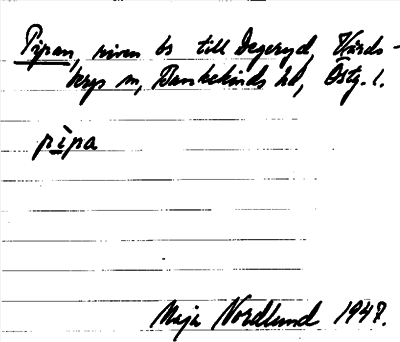 Pipan, riven bs till Degeryd, Vårds-
bergs sn, Bankekinds hd, Östg. l.
pipa
Maja Nordlund 1947.